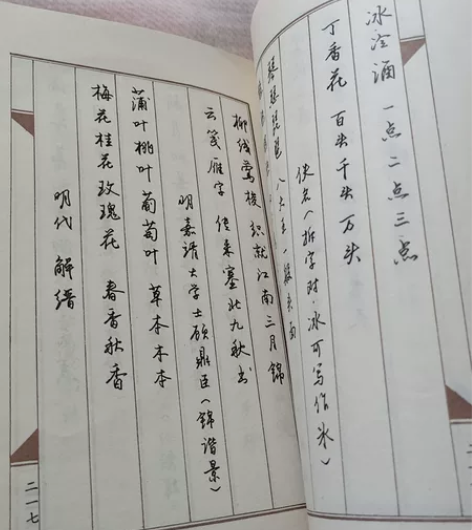 冰冷酒 一点 二点 三点
丁香花 百头 千头 万头
佚名(拆字对·冰可写作氷)
琵琶 八大王 一般头面
柳线莺梭 织就江南三月锦
云笺雁字 传来塞北九秋书
明嘉靖大学士顾鼎臣(锦谐景)
蒲叶桃叶葡萄叶 草本木本
梅花桂花玫瑰花 春香秋香
明代 解缙
二一七